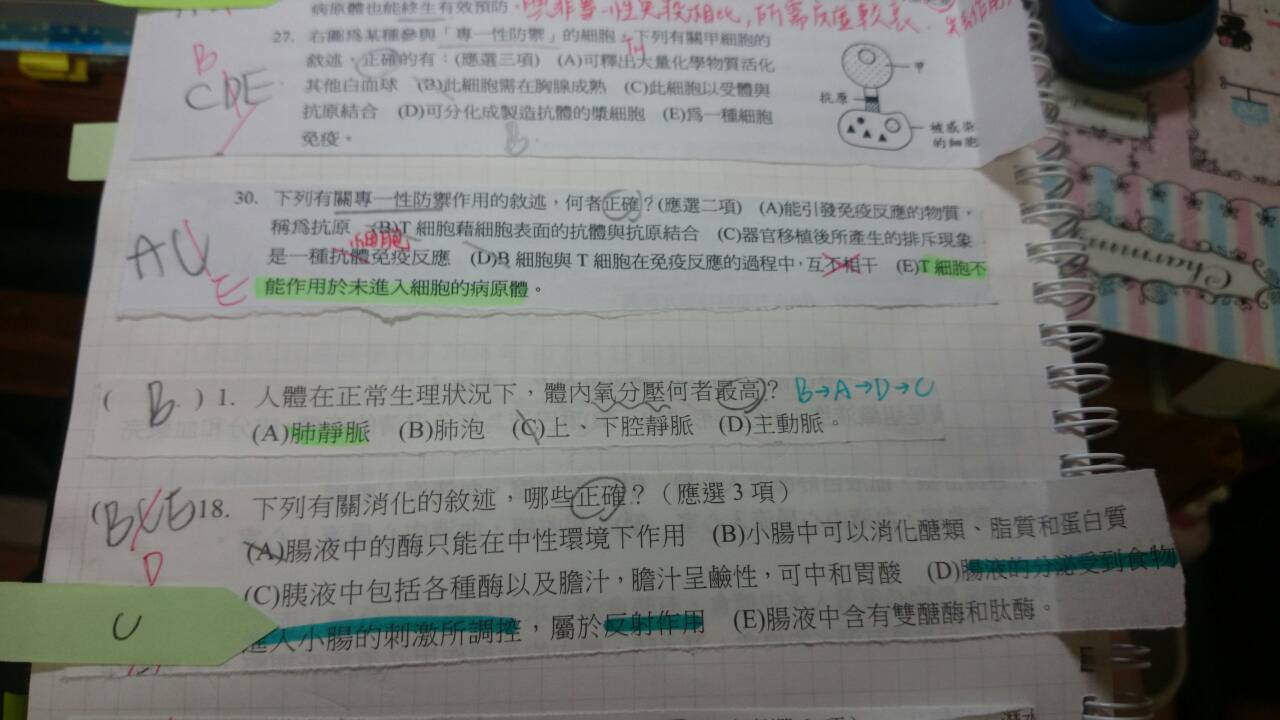 病原體也能終生有效預防。與非專一性免疫相比，所需反應較長
27. 右圖為某種參與「專一性防禦」的細胞，下列有關甲細胞的
敘述，正確的有：(應選三項) (A)可釋出大量化學物質活化
其他白血球 (B)此細胞需在胸腺成熟 (C)此細胞以受體與
抗原結合 (D)可分化成製造抗體的漿細胞 (E)為一種細胞
免疫。
B
CDE
B
甲
抗原
被感染
的細胞
30. 下列有關專一性防禦作用的敘述，何者正確？(應選二項) (A)能引發免疫反應的物質，
稱為抗原 (B)T 細胞藉細胞表面的抗體與抗原結合 (C)器官移植後所產生的排斥現象
細胞
是一種抗體免疫反應 (D)B 細胞與 T 細胞在免疫反應的過程中，互不相干 (E)T 細胞不
能作用於未進入細胞的病原體。
AC
E
( B ) 1. 人體在正常生理狀況下，體內氧分壓何者最高？ B→A→D→C
(A)肺靜脈 (B)肺泡 (C)上、下腔靜脈 (D)主動脈。
(BCE 18. 下列有關消化的敘述，哪些正確？（應選 3 項）
D
(A)腸液中的酶只能在中性環境下作用 (B)小腸中可以消化醣類、脂質和蛋白質
(C)胰液中包括各種酶以及膽汁，膽汁呈鹼性，可中和胃酸 (D)腸液的分泌受到食物
進入小腸的刺激所調控，屬於反射作用 (E)腸液中含有雙醣酶和肽酶。
C
Charmmy